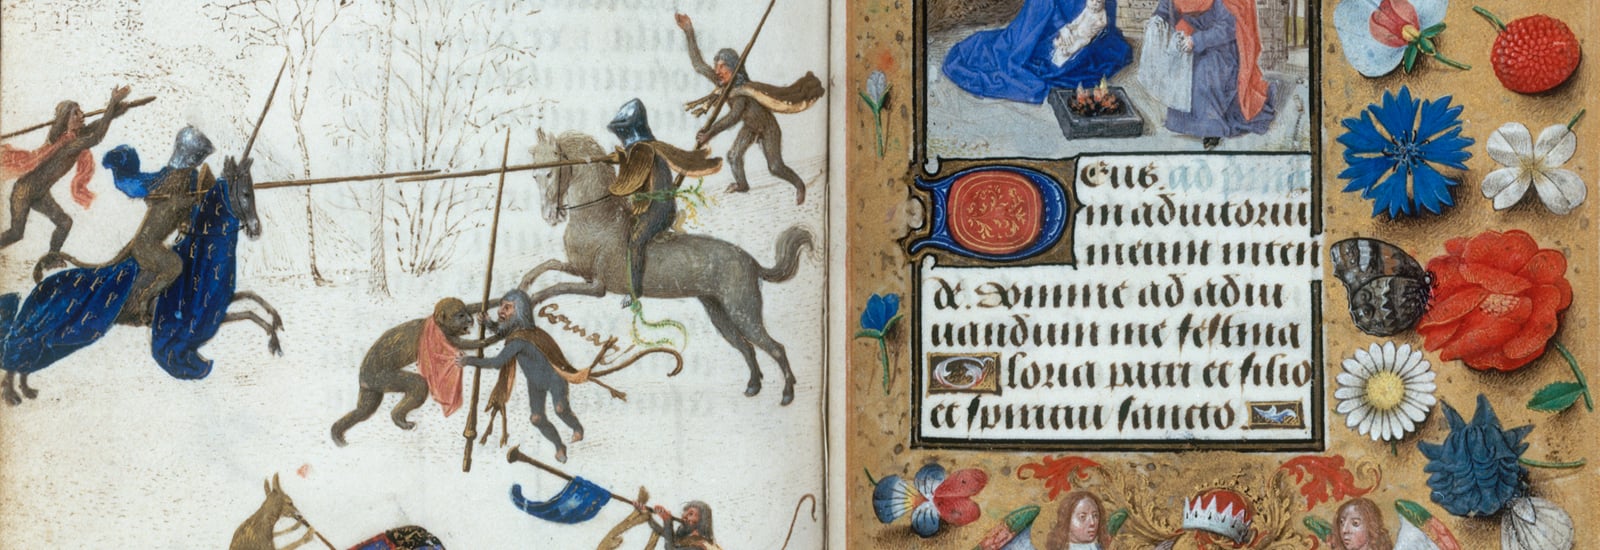 Bornat
Eus
in adiutoriu
meum inten
de. Domine ad adiu
uandum me festina
Gloria patri et filio
et spiritui sancto